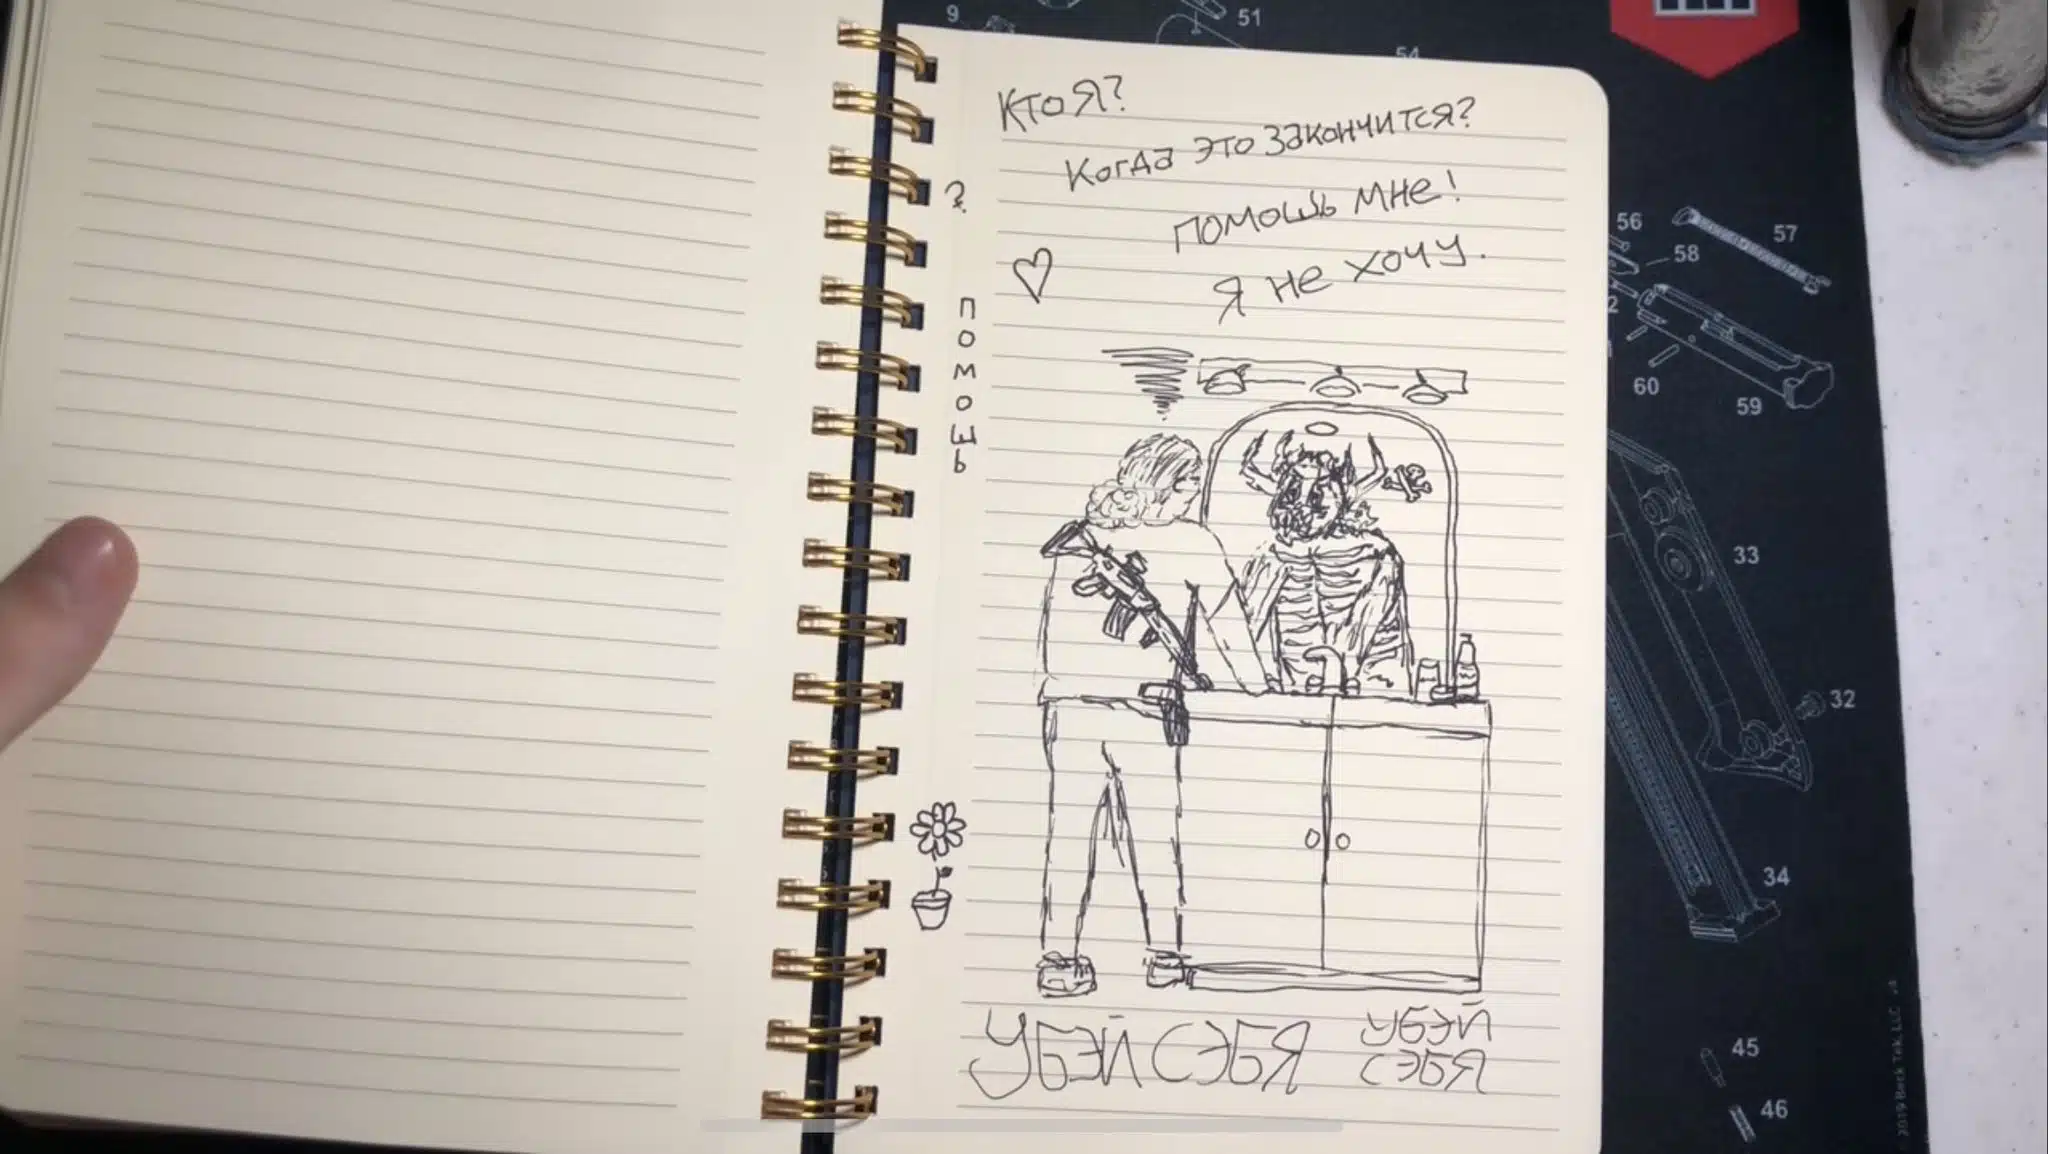 Кто я?
Когда это закончится?
помошь мне!
я не хочу.
?
помошь
Убэй сэбя
убэй
сэбя
9
51
54
56
57
58
60
59
33
32
34
45
46
2019 Beck Tek, LLC